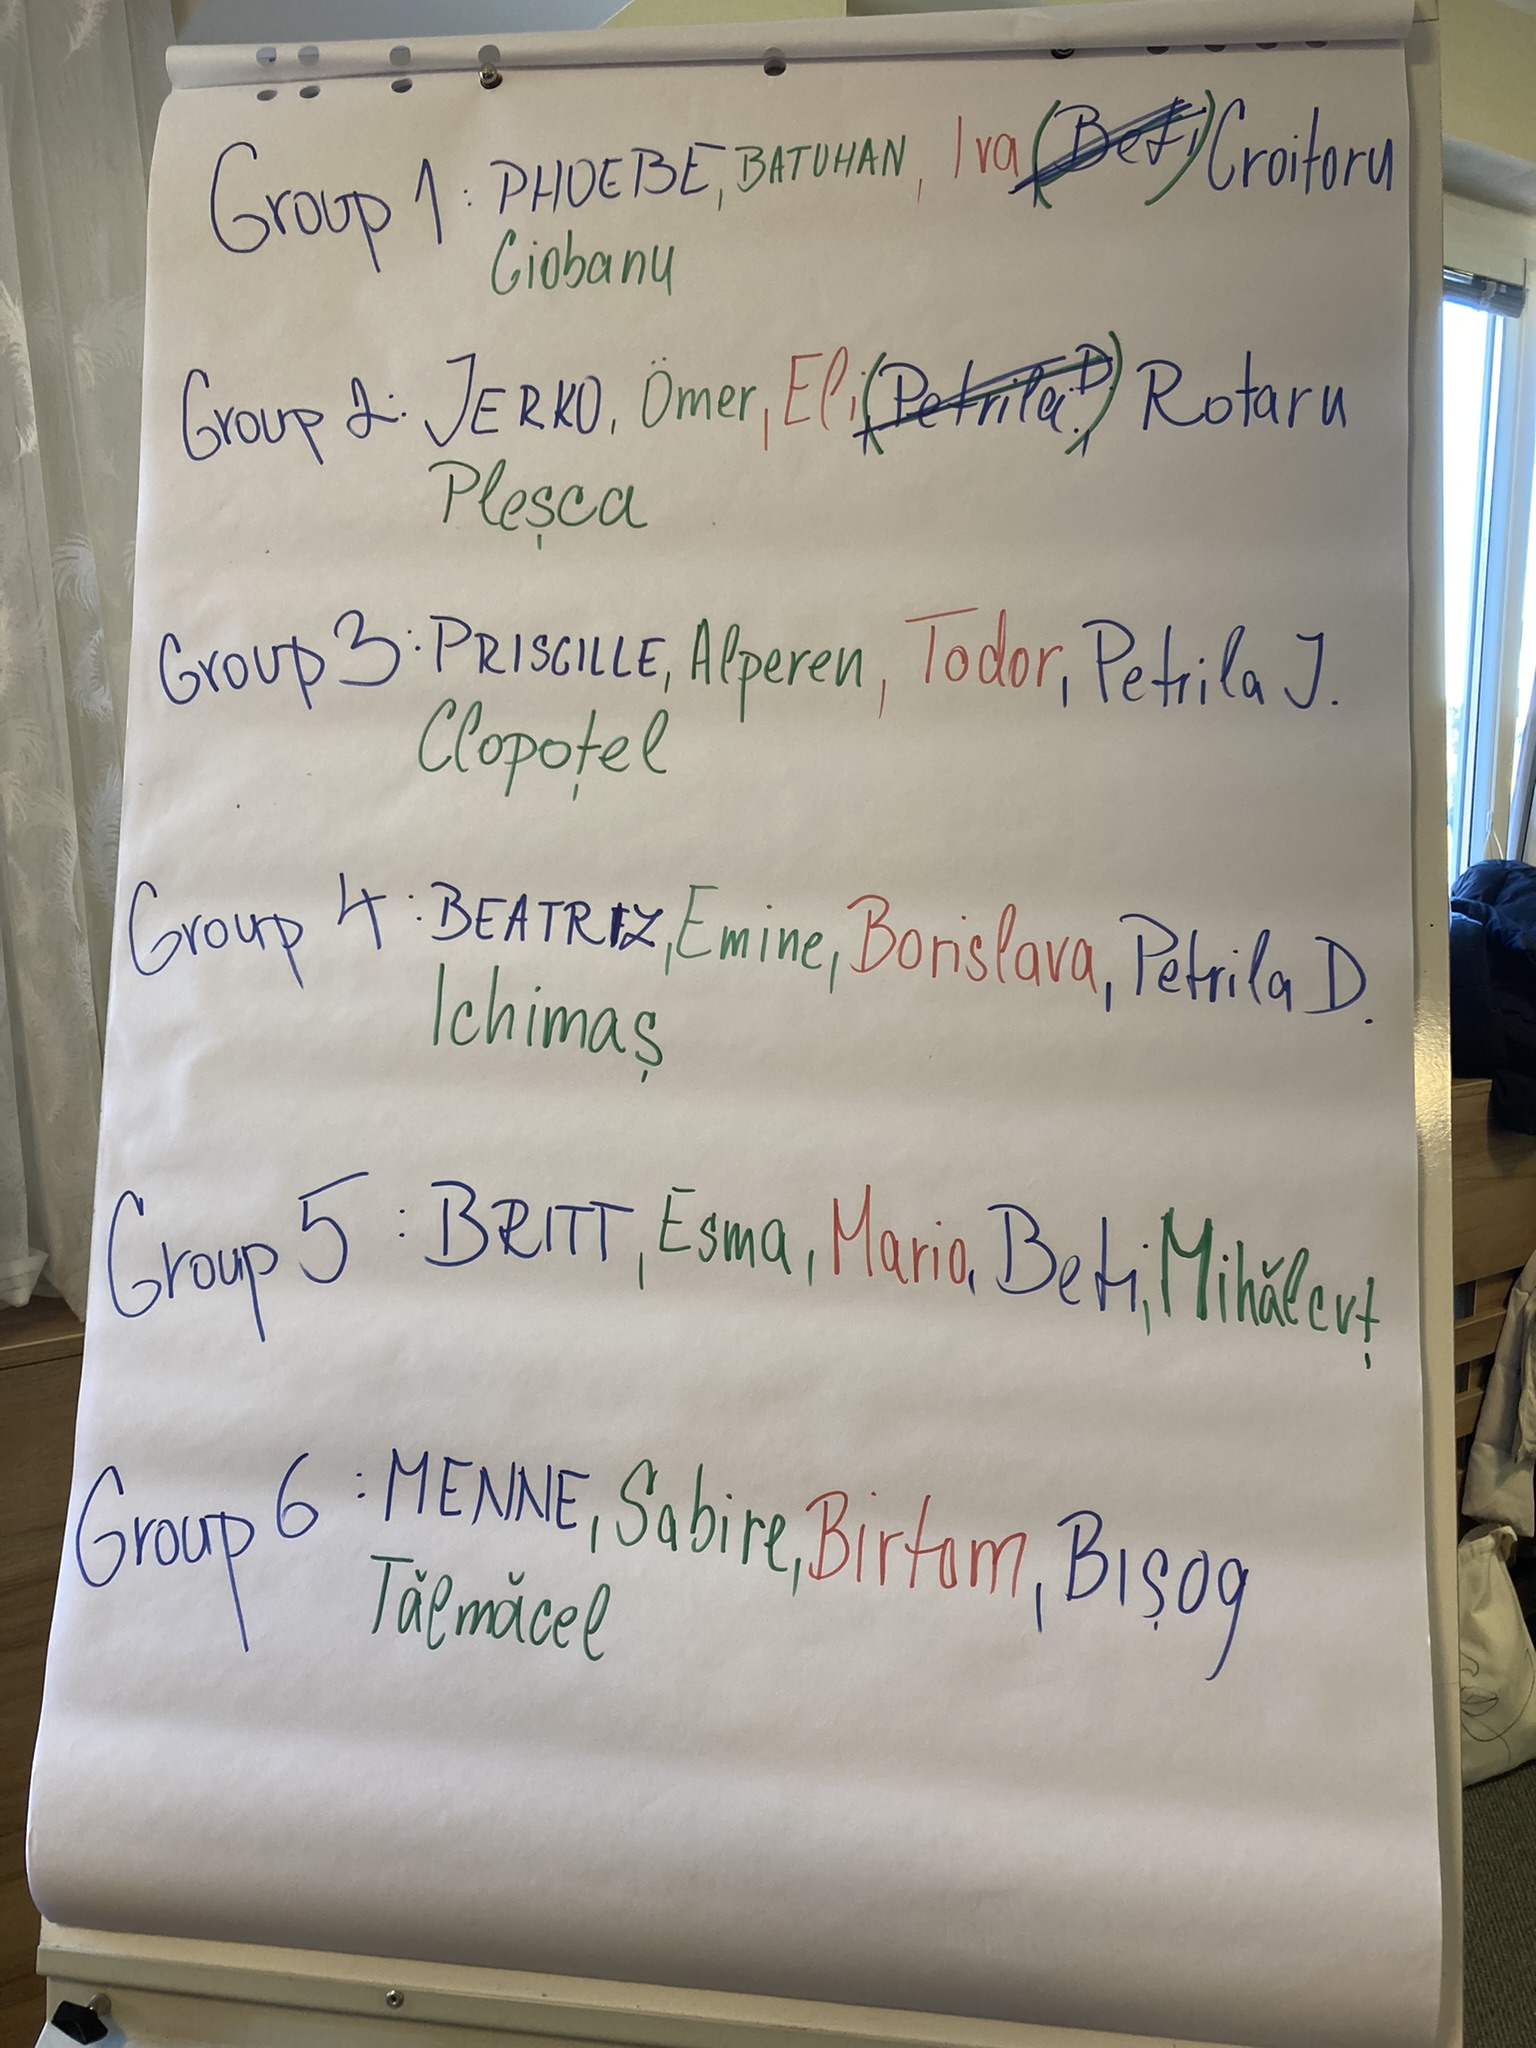 Group 1: PHOEBE, BATUHAN, Iva (Beti) Croitoru
Ciobanu
Group 2: JERKO, Ömer, Eli (Petrila D.) Rotaru
Pleșca
Group 3: PRISCILLE, Alperen, Todor, Petrila J.
Clopoțel
Group 4: BEATRIZ, Emine, Borislava, Petrila D.
Ichimaș
Group 5: BRITT, Esma, Mario, Beti, Mihălcuț
Group 6: MENNE, Sabire, Birtam, Bișog
Tălmăcel